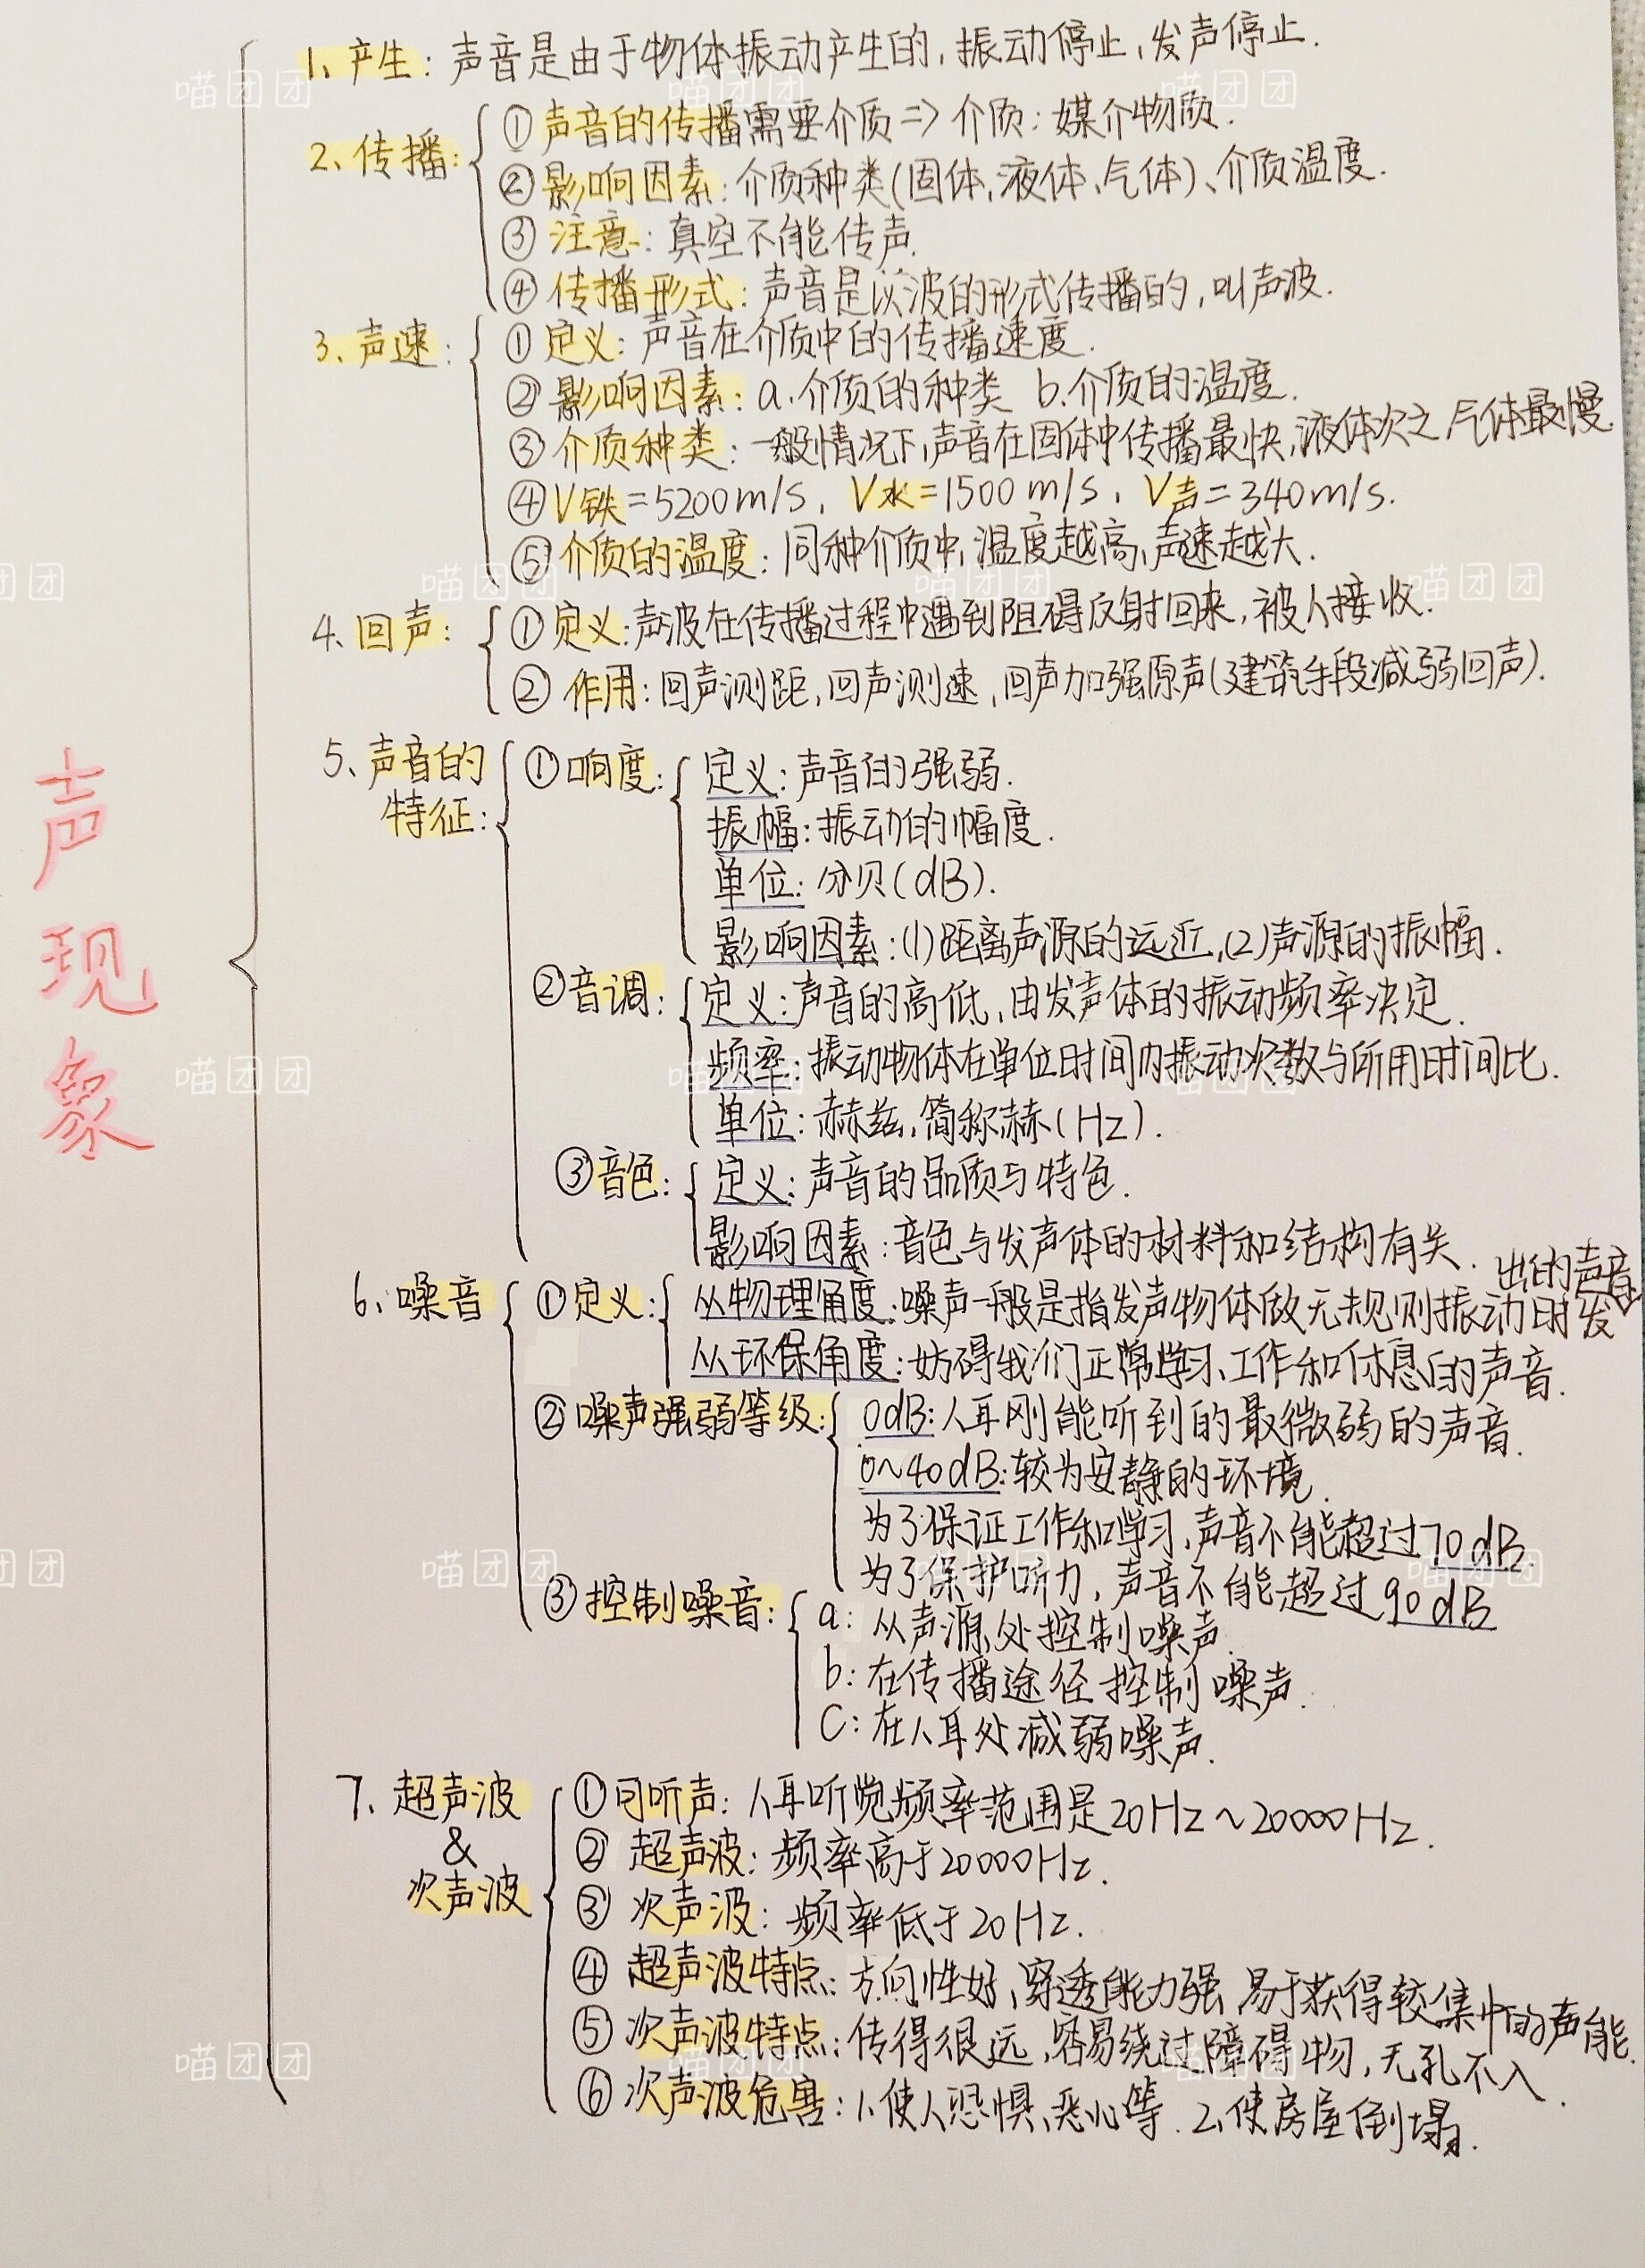 声现象
1、产生：声音是由于物体振动产生的，振动停止，发声停止.
2、传播：
①声音的传播需要介质=>介质：媒介物质.
②影响因素：介质种类(固体、液体、气体)、介质温度.
③注意：真空不能传声.
④传播形式：声音是以波的形式传播的，叫声波.
3、声速：
①定义：声音在介质中的传播速度.
②影响因素：a.介质的种类 b.介质的温度.
③介质种类：一般情况下，声音在固体中传播最快，液体次之，气体最慢.
④V铁=5200m/s，V水=1500m/s，V声=340m/s.
⑤介质的温度：同种介质中，温度越高，声速越大.
4、回声：
①定义：声波在传播过程中遇到阻碍反射回来，被人接收.
②作用：回声测距，回声测速，回声加强原声(建筑手段减弱回声).
5、声音的
特征：
①响度：
定义：声音的强弱.
振幅：振动的幅度.
单位：分贝(dB).
影响因素：(1)距离声源的远近，(2)声源的振幅.
②音调：
定义：声音的高低，由发声体的振动频率决定.
频率：振动物体在单位时间内振动次数与所用时间比.
单位：赫兹，简称赫(Hz).
③音色：
定义：声音的品质与特色.
影响因素：音色与发声体的材料和结构有关.
6、噪音
①定义：
从物理角度：噪声一般是指发声物体做无规则振动时发
出的声音
从环保角度：妨碍我们正常学习、工作和休息的声音.
②噪声强弱等级：
0dB：人耳刚能听到的最微弱的声音.
0~40dB：较为安静的环境.
为了保证工作和学习，声音不能超过70dB.
为了保护听力，声音不能超过90dB
③控制噪音：
a：从声源处控制噪声.
b：在传播途径控制噪声.
C：在人耳处减弱噪声.
7、超声波
&
次声波
①可听声：人耳听觉频率范围是20Hz~20000Hz.
②超声波：频率高于20000Hz.
③次声波：频率低于20Hz.
④超声波特点：方向性好、穿透能力强、易于获得较集中的声能.
⑤次声波特点：传得很远，容易绕过障碍物，无孔不入.
⑥次声波危害：1、使人恐惧、恶心等. 2、使房屋倒塌.
喵团团